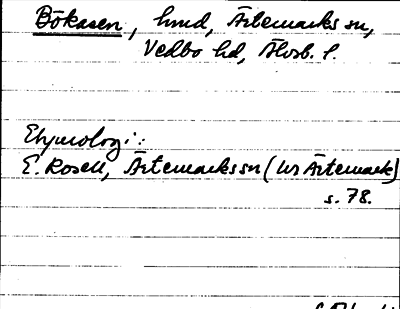 Bökasen, hmd, Ärtemarks sn,
Vedbo hd, Älvsb. l.
Etymologi:
E. Rosell, Ärtemarks sn (ur Ärtemark)
s. 78.